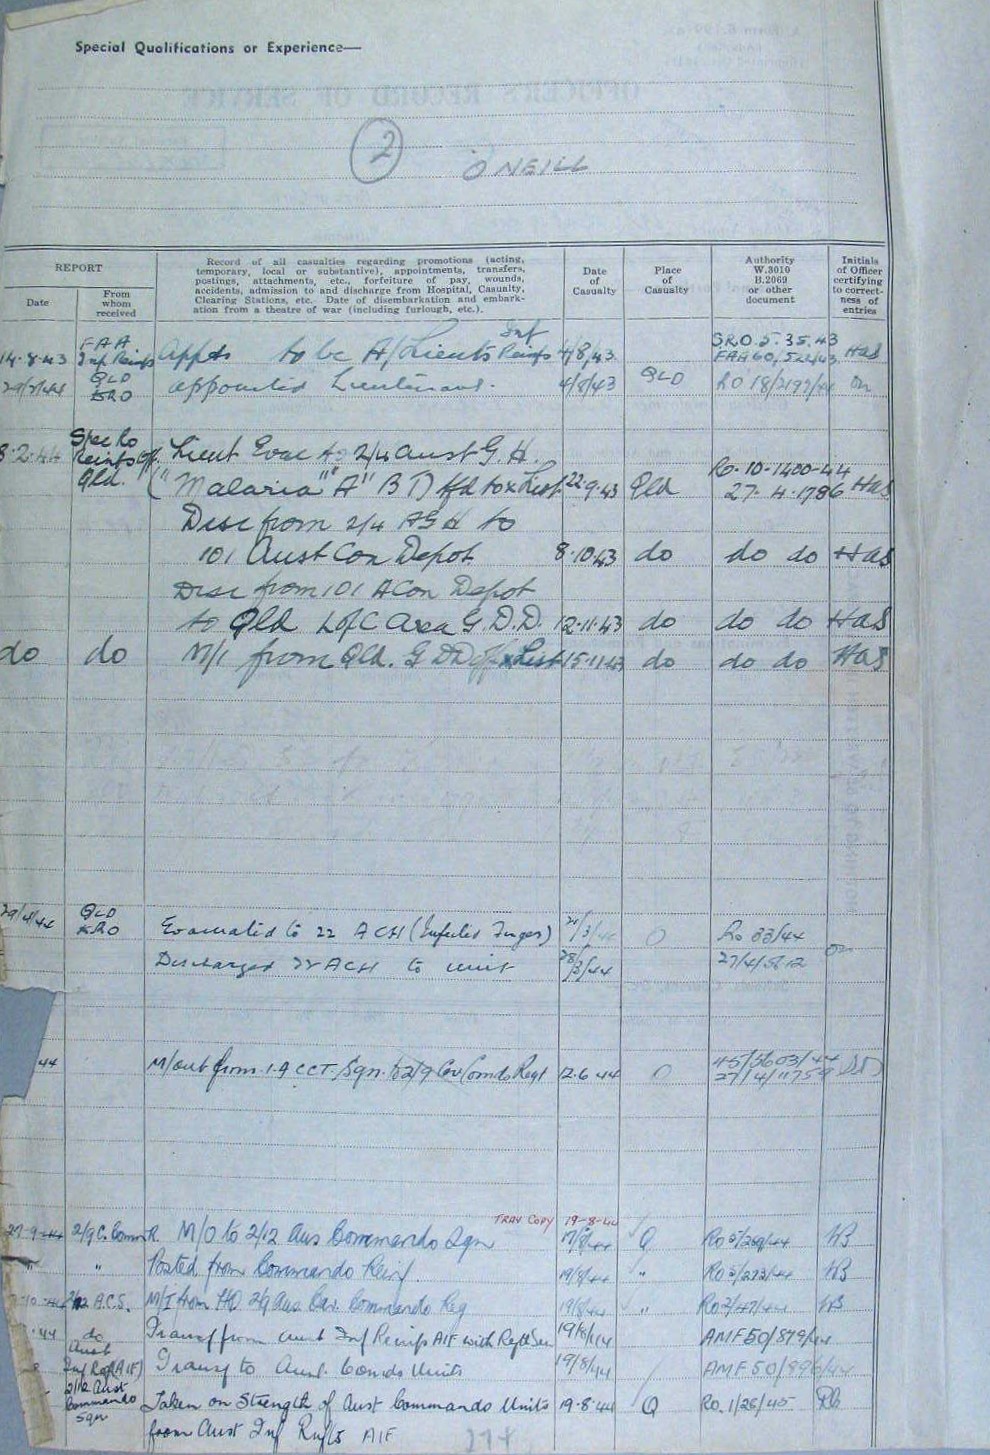 Special Qualifications or Experience—
2
O'NEILL
REPORT
Date
From whom received
Record of all casualties regarding promotions (acting, temporary, local or substantive), appointments, transfers, postings, attachments, etc., forfeiture of pay, wounds, accidents, admission to and discharge from Hospital, Casualty, Clearing Stations, etc. Date of disembarkation and embarkation from a theatre of war (including furlough, etc.).
Date of Casualty
Place of Casualty
Authority W.3010 B.2069 or other document
Initials of Officer certifying to correctness of entries
14-8-43 FAA Inf Reinfs Appts to be A/Lieuts Inf Reinfs 4/8/43 SRO 5.35.43 Has
QLD appointed Lieutenant. 4/8/43 QLD
8.2.44 Reinfs Off. Lieut Evac to 2/4 Aust G.H.
Qld. ("Malaria" "A" B T) tfd to x List 22.9.43 Qld Ro. 10-1400-44 27.4.1786 Has
Disc from 2/4 AGH to
101 Aust Con Depot 8.10.43 do do do Has
Disc from 101 A Con Depot
to Qld L of C Area G.D.D. 12.11.43 do do do Has
do do M/I from Qld. G DD off x List 15.11.43 do do do Has
29/4/44 QLD Evacuated to 22 ACH (Infected Finger) 21/3/44 O Ro 33/44
Discharged 22 ACH to unit 28/3/44
44 M/out from 1 A CCT/Sqn. to 2/9 Cav Comdo Regt 12.6.44 O 45/5603/44 27/4/11759
TRAV COPY 19-8-44
27-9-44 M/O to 2/12 Aus Commando Sqn Q
" " Posted from Commando Reinf. 19/8/44 " Ro 3/273/44
2/12 A.C.S. M/I from HQ 2/9 Aus Cav. Commando Reg 19/8/44 "
44 do Transf from Aust Inf Reinfs AIF 19/8/44 AMF 50/879/44
Aust Inf Rfts (AIF) Transf to Aust. Comdo Units 19/8/44 AMF 50/896/44
2/12 Aust Commando Sqn Taken on Strength of Aust Commando Units 19-8-44 Q Ro. 1/26/45
from Aust Inf Rfts AIF